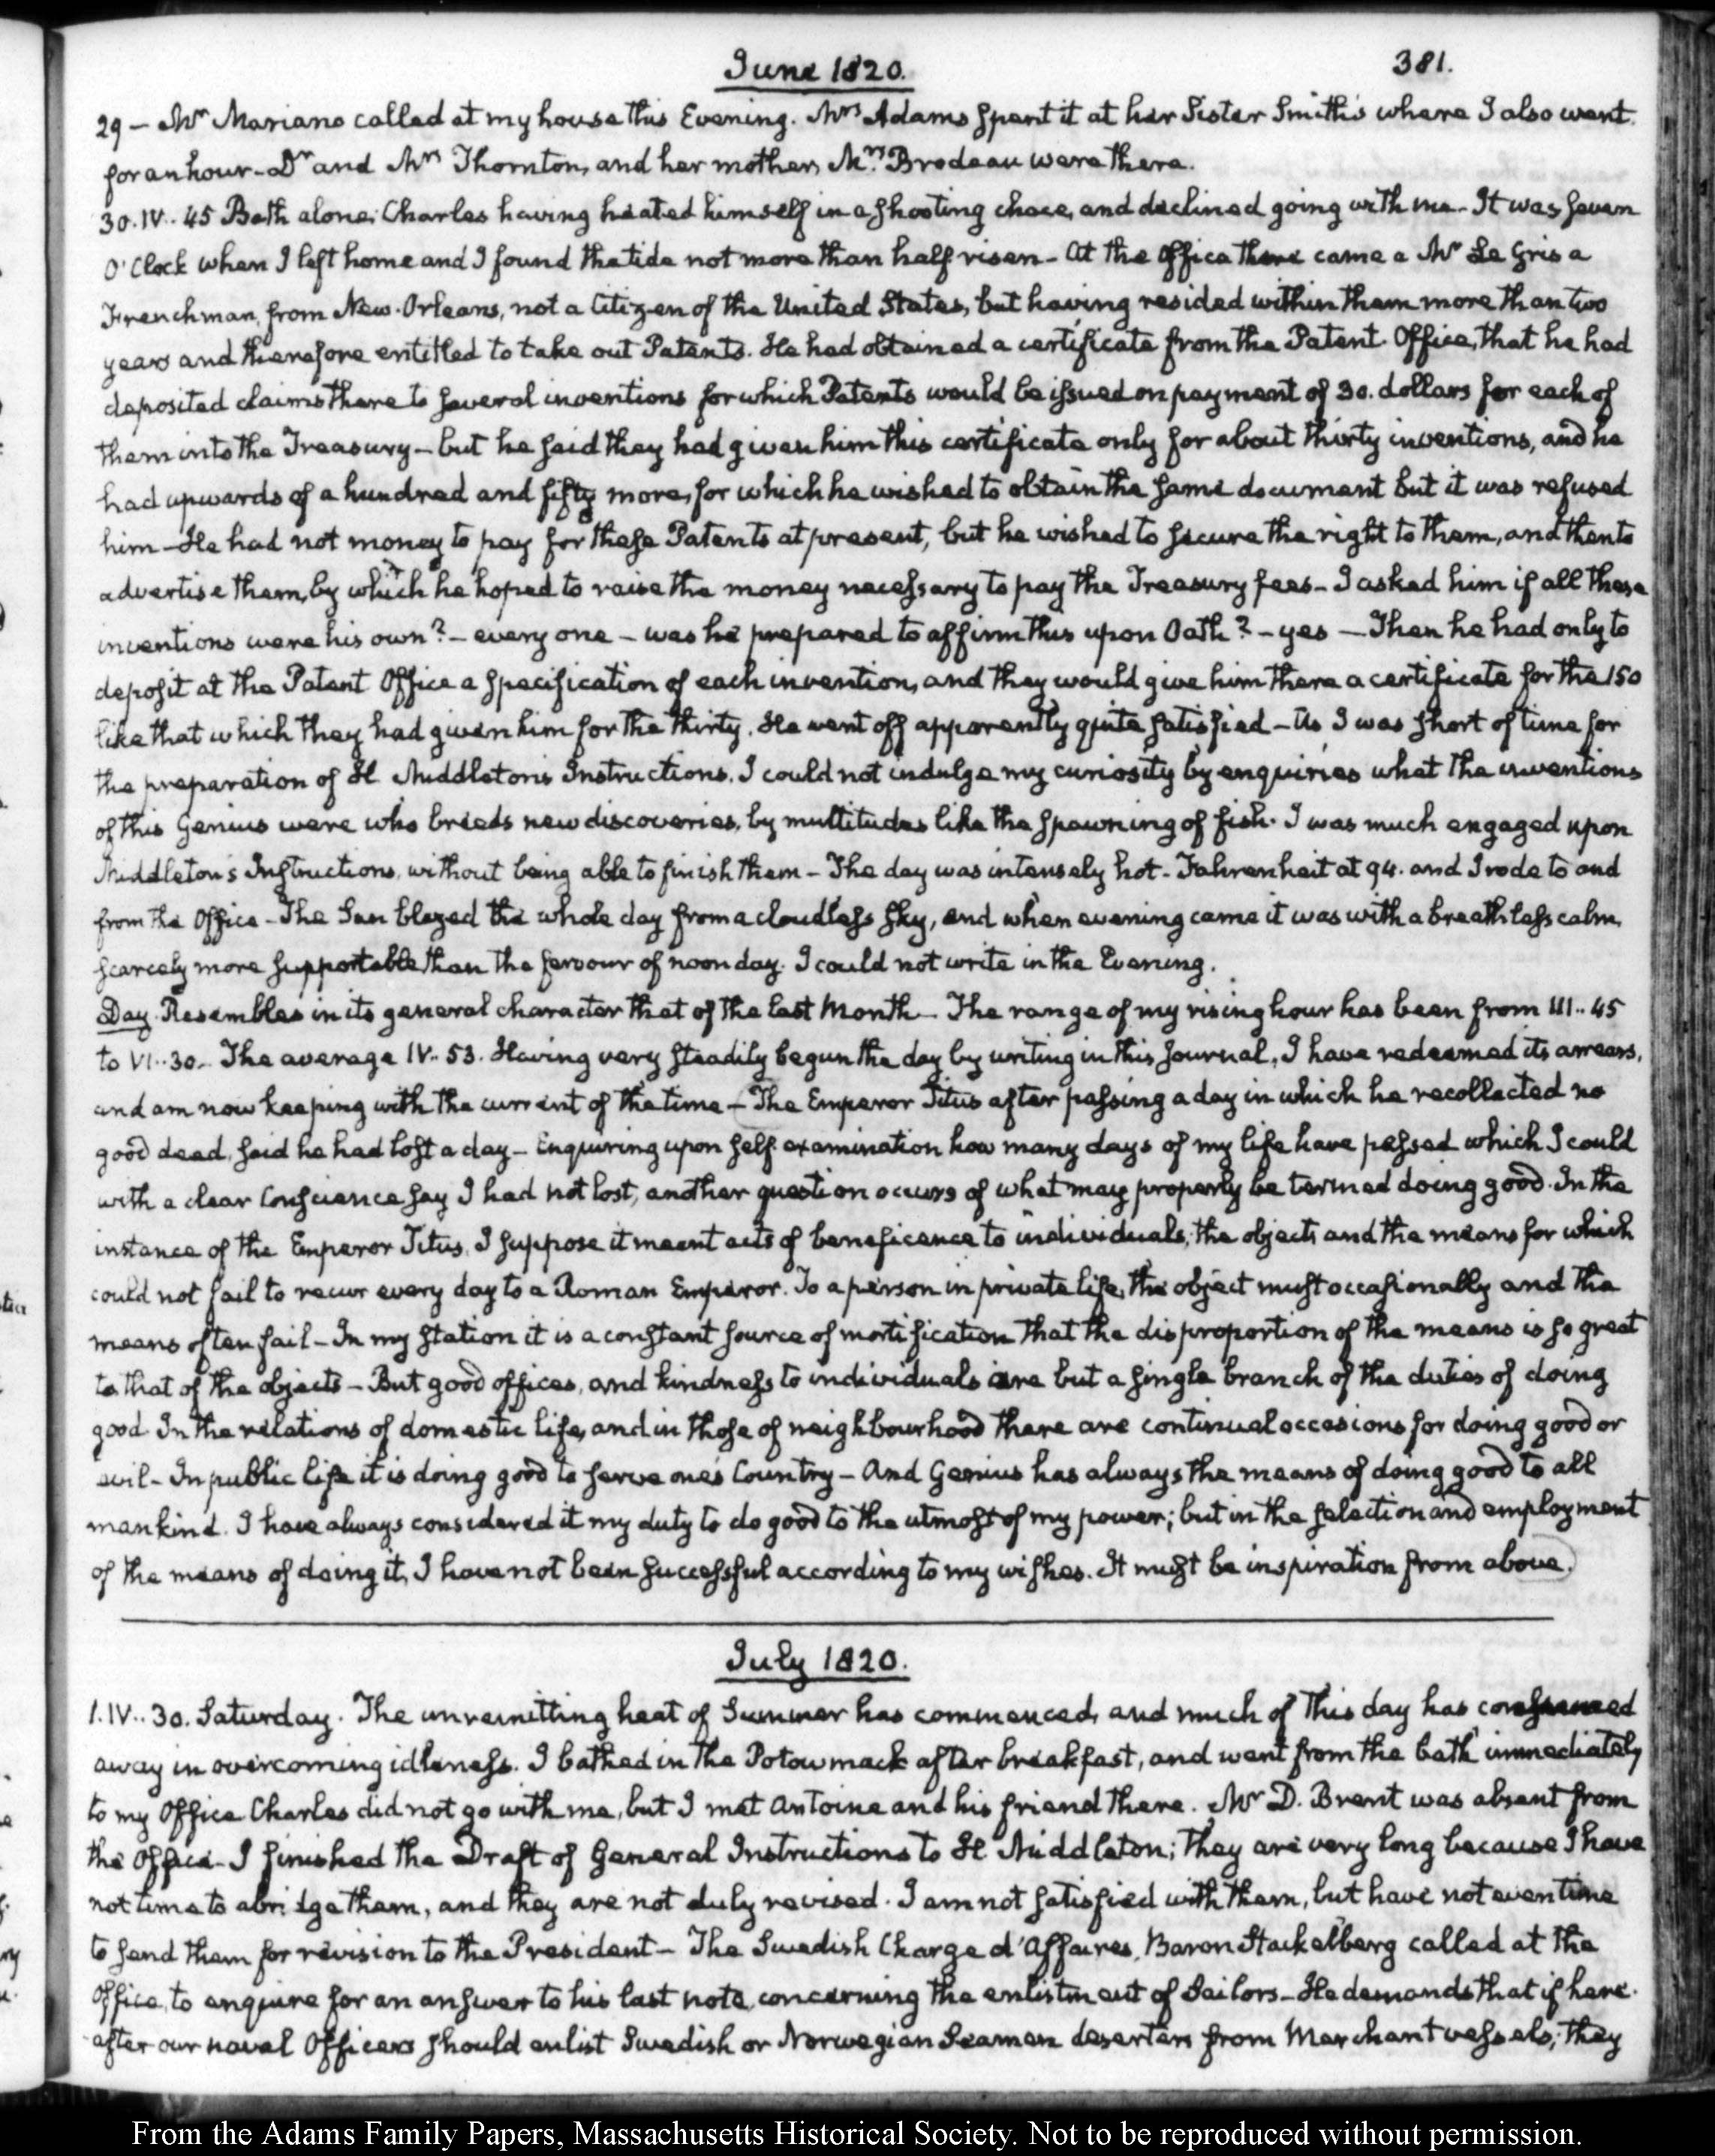 June 1820.
381.
29 – Mr Mariano called at my house this Evening. Mrs Adams spent it at her Sister Smith's where I also went
for an hour – Dr and Mrs Thornton, and her mother, Mrs Brodeau were there.
30. IV.. 45 Bath alone; Charles having heated himself in a shooting chace, and declined going with me – It was seven
O'Clock when I left home and I found the tide not more than half risen – At the Office there came a Mr Le Gris a
Frenchman, from New-Orleans, not a Citizen of the United States, but having resided within them more than two
years and therefore entitled to take out Patents. He had obtained a certificate from the Patent Office, that he had
deposited claims there to several inventions for which Patents would be issued on payment of 30. dollars for each of
them into the Treasury – but he said they had given him this certificate only for about thirty inventions, and he
had upwards of a hundred and fifty more, for which he wished to obtain the same document but it was refused
him – He had not money to pay for these Patents at present, but he wished to secure the right to them, and then to
advertise them, by which he hoped to raise the money necessary to pay the Treasury fees – I asked him if all these
inventions were his own? – every one – was he prepared to affirm this upon Oath? – yes – Then he had only to
deposit at the Patent Office a specification of each invention, and they would give him there a certificate for the 150
like that which they had given him for the thirty. He went off apparently quite satisfied – As I was short of time for
the preparation of H Middleton's Instructions, I could not indulge my curiosity by enquiries what the inventions
of this Genius were who breeds new discoveries, by multitudes like the spawning of fish. I was much engaged upon
Middleton's Instructions, without being able to finish them – The day was intensely hot – Fahrenheit at 94. and I rode to and
from the Office – The Sun blazed the whole day from a cloudless sky, and when evening came it was with a breathless calm,
scarcely more supportable than the fervour of noon day. I could not write in the Evening.
Day. Resembles in its general character that of the last Month – The range of my rising hour has been from III.. 45
to VI.. 30 – The average IV.. 53. Having very steadily begun the day by writing in this Journal, I have redeemed its arrears,
and am now keeping with the current of the time – The Emperor Titus after passing a day in which he recollected no
good deed, said he had lost a day – Enquiring upon self examination how many days of my life have passed which I could
with a clear Conscience say I had not lost, another question occurs of what may properly be termed doing good. In the
instance of the Emperor Titus, I suppose it meant acts of beneficence to individuals, the objects and the means for which
could not fail to recur every day to a Roman Emperor. To a person in private life, the object must occasionally and the
means often fail – In my station it is a constant source of mortification that the disproportion of the means is so great
to that of the objects – But good offices, and kindness to individuals are but a single branch of the duties of doing
good. In the relations of domestic life, and in those of neighbourhood there are continual occasions for doing good or
evil – In public life it is doing good to serve one's Country – And Genius has always the means of doing good to all
mankind. I have always considered it my duty to do good to the utmost of my power; but in the selection and employment
of the means of doing it, I have not been successful according to my wishes. It must be inspiration from above.
July 1820.
1. IV.. 30. Saturday. The unremitting heat of Summer has commenced, and much of this day has consumed
away in overcoming idleness. I bathed in the Potowmack after breakfast, and went from the bath immediately
to my Office Charles did not go with me, but I met Antoine and his friend there. Mr D. Brent was absent from
the Office – I finished the Draft of General Instructions to H Middleton; they are very long because I have
not time to abridge them, and they are not duly revised. I am not satisfied with them, but have not even time
to send them for revision to the President – The Swedish Charge d'Affaires, Baron Stackelberg called at the
Office, to enquire for an answer to his last note, concerning the enlistment of Sailors – He demands that if here-
after our naval Officers should enlist Swedish or Norwegian Seamen deserters from Merchant vessels, they
From the Adams Family Papers, Massachusetts Historical Society. Not to be reproduced without permission.